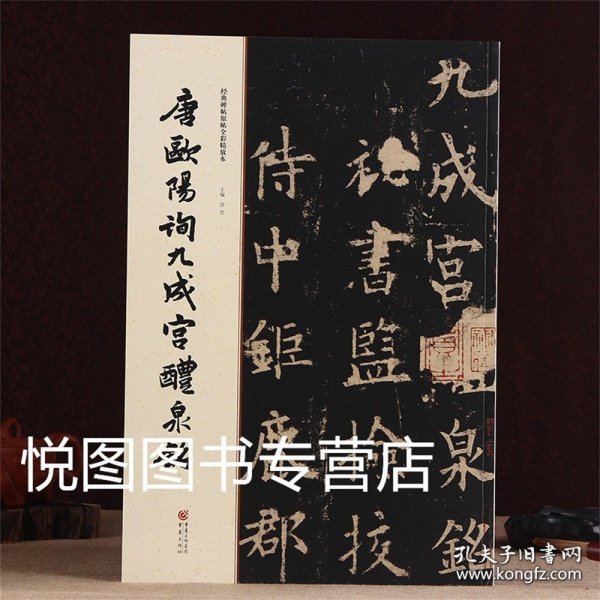 经典碑帖原帖全彩精放本
唐歐陽询九成宫醴泉銘
主编 洪亮
九成宫醴泉銘
祕書監檢挍
侍中鉅鹿郡
重庆出版集团
重庆出版社
悦图图书专营店
孔夫子旧书网
www.kongfz.com